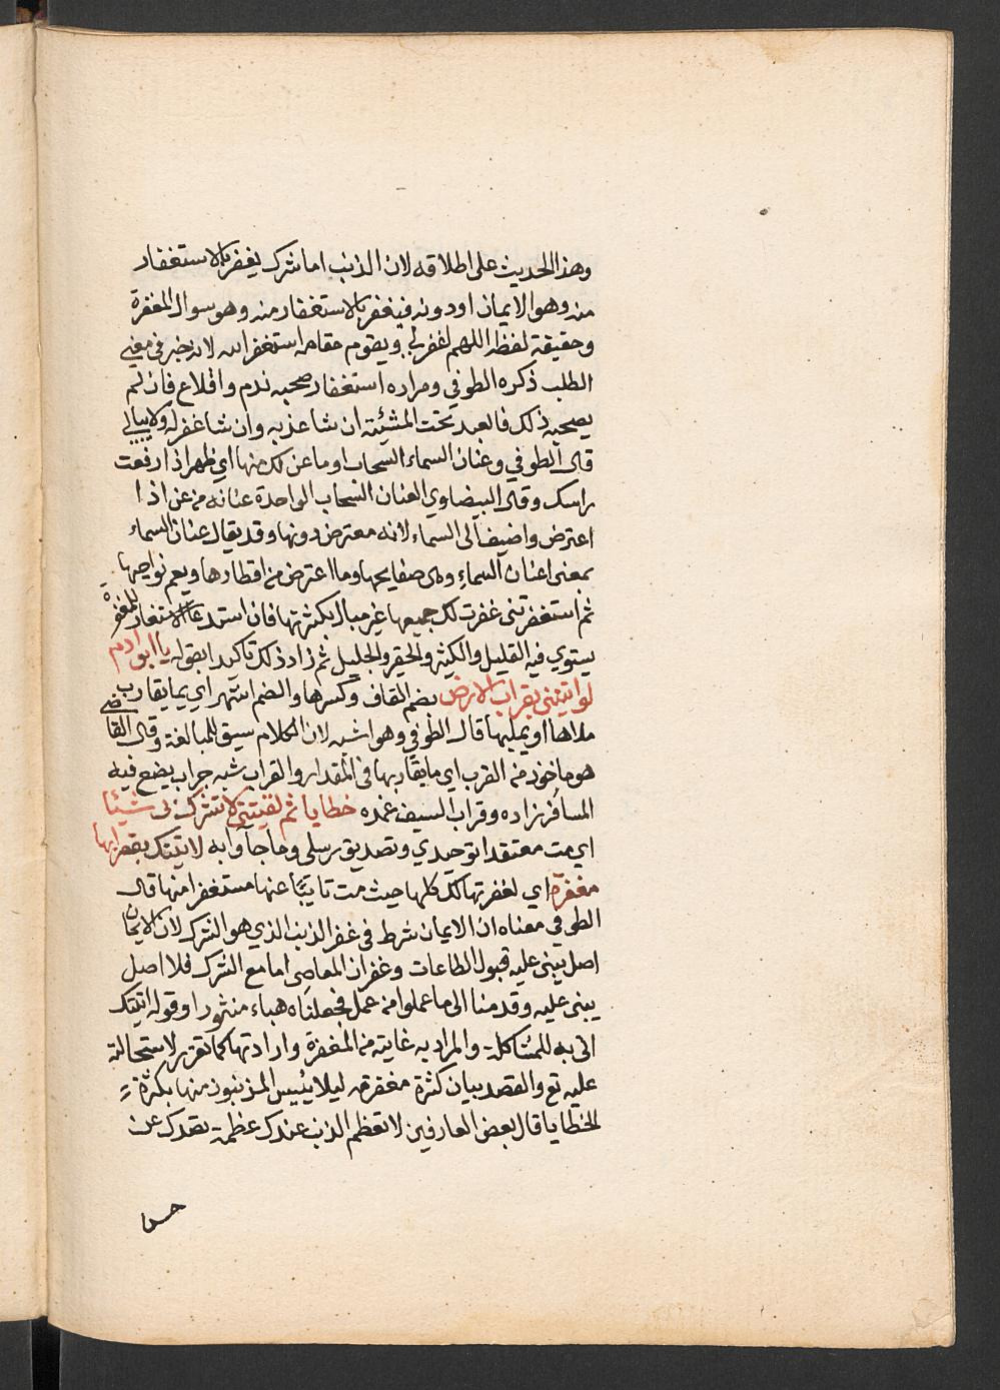 وهذا الحديث على اطلاقه لان الذنب اما شرك يغفر بالاستغفار
منه وهو الايمان او دونه فيغفر بالاستغفار منه وهو سوال المغفرة
وحقيقة لفظه اللهم اغفر لي ويقوم مقامه استغفر الله لانه خبر في معنى
الطلب ذكره الطوفي ومراده استغفار صحبه ندم واقلاع فان لم
يصحبه ذلك فالعبد تحت المشئية ان شا عذبه وان شا غفر له ولا يبالي
قال الطوفي وعنان السماء السحاب او ما عن لك منها اي ظهر اذا رفعت
راسك وقال البيضاوي العنان السحاب الواحدة عنانه من عن اذا
اعترض واضيف الى السماء لانه معترض دونها وقد يقال عنان السماء
بمعنى اعنان السماء وهى صفايحها وما اعترض من اقطارها ويعم نواحيها
ثم استغفرتنى غفرت لك جميعها غير مبال بكثرتها فان استدعا الاستغفار للمغفرة
يستوي فيه القليل والكثير والحقير والجليل ثم زاد ذلك تاكيدا بقوله يا ابن ادم
لو اتيتنى بقراب الارض بضم القاف وكسرها والضم اشهر اي بما يقارب
ملاها او يمليها قال الطوفي وهو اشبه لان الكلام سيق للمبالغة وقال القاضي
هو ماخوذ من القرب اي ما يقاربها في المقدار والقراب شبه جراب يضع فيه
المسافر زاده وقراب السيف غمده خطايا ثم لقيتني لا تشرك بى شيئا
اي مت معتقدا توحيدي وتصديق رسلي وما جاآوا به لاتيتك بقرابها
مغفرة اي لغفرتها لك كلها حيث مت تايبا عنها مستغفرا منها قال
الطوفي معناه ان الايمان شرط في غفر الذنب الذي هو الشرك لان الايمان
اصل يبنى عليه قبول الطاعات وغفران المعاصى اما مع الشرك فلا اصل
يبنى عليه وقدمنا الى ما عملوا من عمل فجعلناه هباء منثورا وقوله اتيتك
اتى به للمشاكلة والمراد به غايته من المغفرة وارادتها كما تقرر لاستحالته
عليه تع والقصد بيان كثرة مغفرته ليلا ييئس المذنبون منها بكثرة
الخطايا قال بعض العارفين لا تعظم الذنب عندك عظمة تصدك عن
حسن